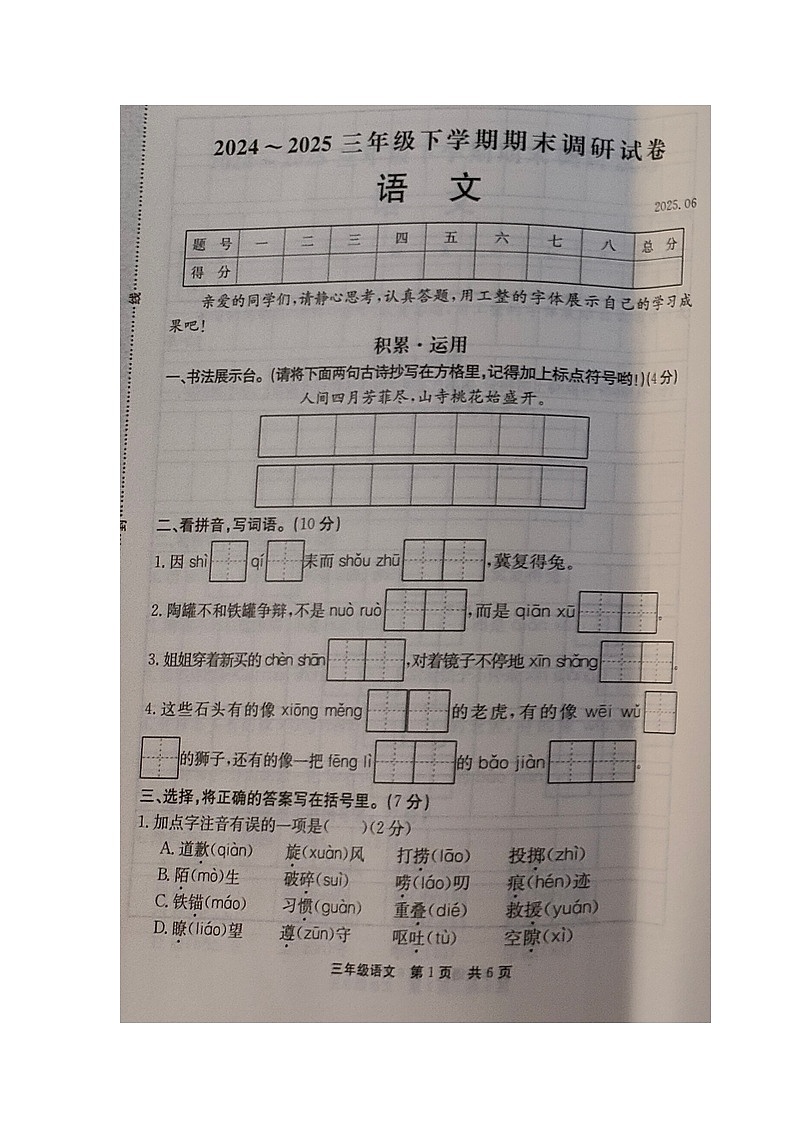 2024～2025 三年级下学期期末调研试卷
语 文
2025.06
题 号 一 二 三 四 五 六 七 八 总 分
得 分
亲爱的同学们,请静心思考,认真答题,用工整的字体展示自己的学习成
果吧!
积累·运用
一、书法展示台。(请将下面两句古诗抄写在方格里,记得加上标点符号哟!)(4分)
人间四月芳菲尽,山寺桃花始盛开。
二、看拼音,写词语。(10分)
1.因 shì qí 耒而 shǒu zhū ,冀复得兔。
2.陶罐不和铁罐争辩,不是 nuò ruò ,而是 qiān xū 。
3.姐姐穿着新买的 chèn shān ,对着镜子不停地 xīn shǎng 。
4.这些石头有的像 xiōng měng 的老虎,有的像 wēi wǔ
的狮子,还有的像一把 fēng lì 的 bǎo jiàn 。
三、选择,将正确的答案写在括号里。(7分)
1.加点字注音有误的一项是( )(2分)
A.道歉(qiàn) 旋(xuàn)风 打捞(lāo) 投掷(zhì)
B.陌(mò)生 破碎(suì) 唠(láo)叨 痕(hén)迹
C.铁锚(máo) 习惯(guàn) 重叠(dié) 救援(yuán)
D.瞭(liáo)望 遵(zūn)守 呕吐(tù) 空隙(xì)
三年级语文 第1页 共6页